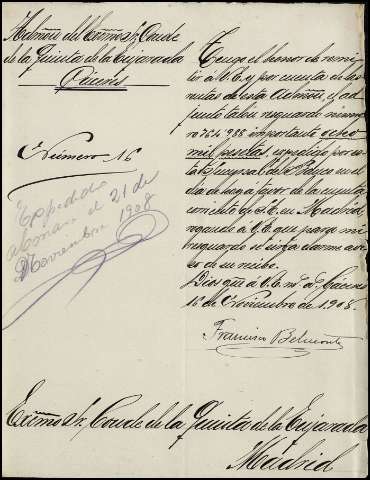 Admón. del Excmo Sr. Conde
de la Quinta de la Enjarada
Cáceres
Número 16
Expedido
abonaré el 21 de
Noviembre 1908
Tengo el honor de remi-
tir á V.E. y por cuenta de las
rentas de esta Admón., el ad-
junto talón resguardo núme-
ro 764.988 importante ocho
mil pesetas, expedido por es-
ta Sucursal del Banco en el
día de hoy á favor de la cuenta
corriente de V.E. en Madrid,
rogando á V.E. que para mi
resguardo se sirva darme avi-
so de su recibo.
Dios gue á V.E. ms. as. Cáceres
16 de Noviembre de 1908.
Francisco Belmonte
Excmo Sr. Conde de la Quinta de la Enjarada
Madrid